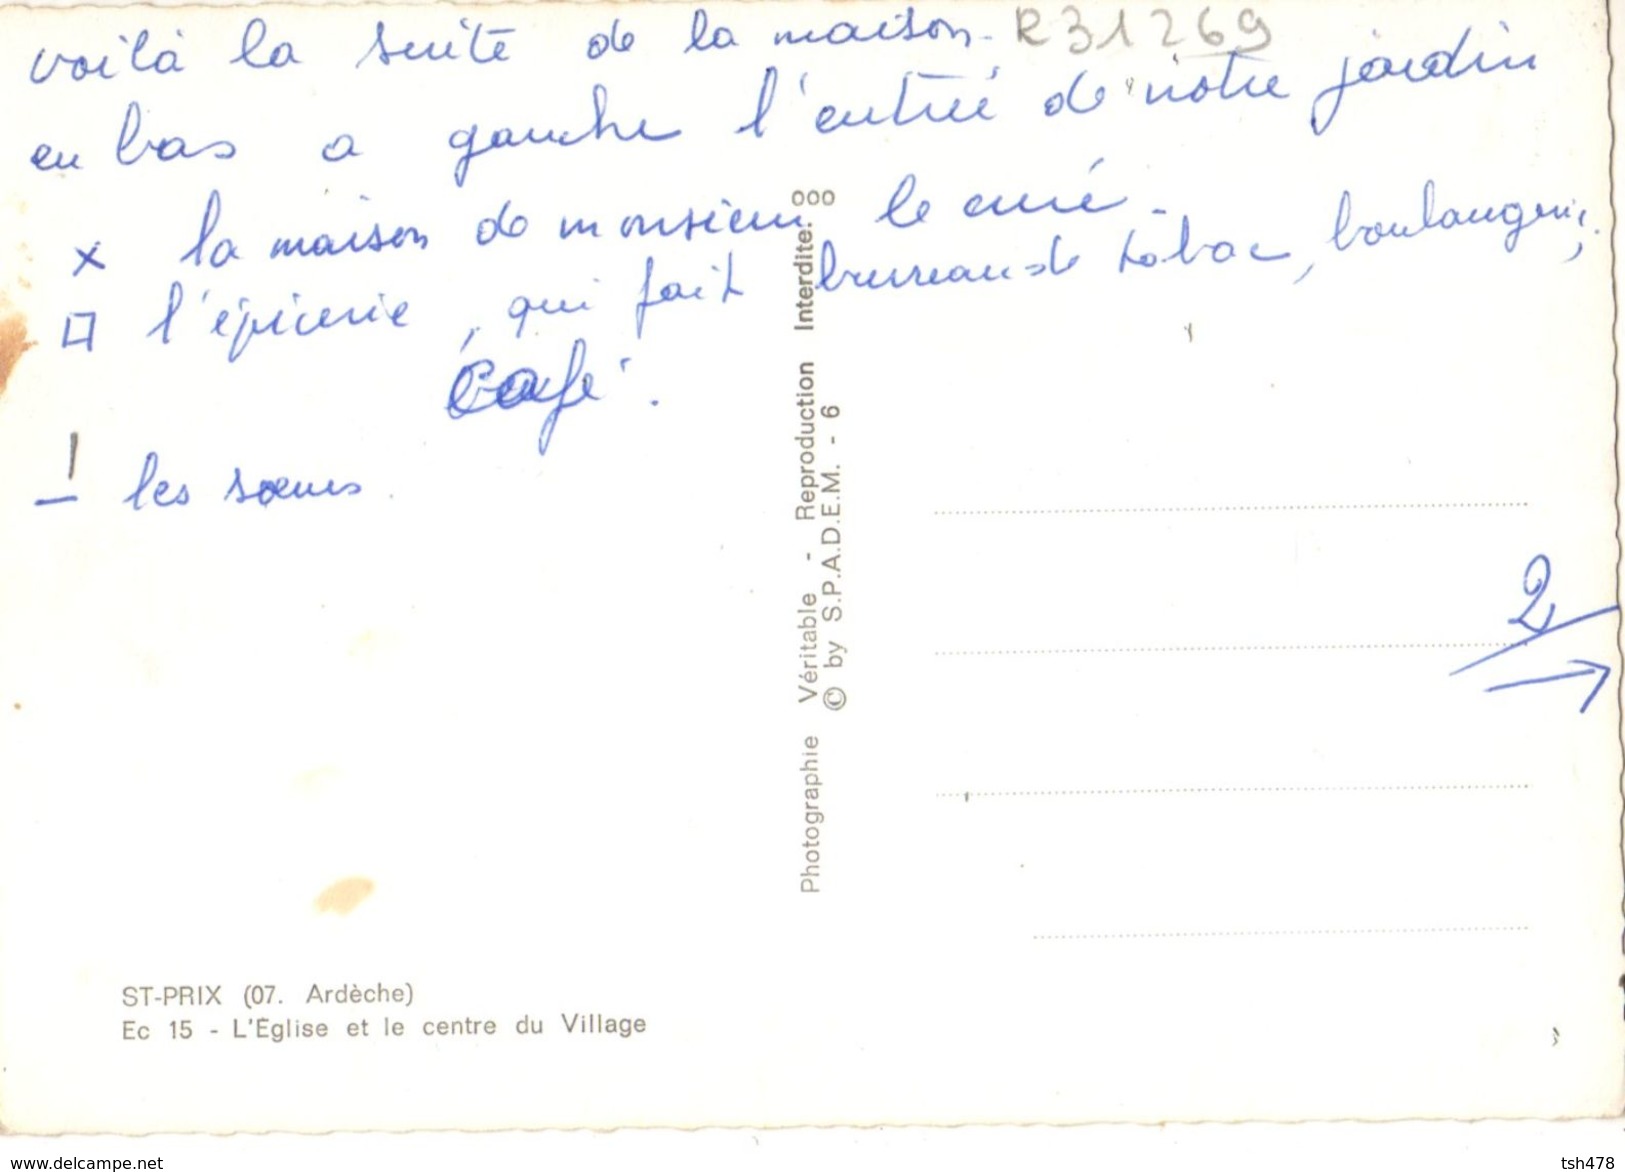 voilà la suite de la maison - R31269
en bas a gauche l'entreé de notre jardin
x la maison de monsieur le curé -
□ l'épicerie, qui fait bureau de tabac, boulangerie,
café.
! — les sœurs.
Photographie Véritable - Reproduction Interdite.
© by S.P.A.D.E.M. - 6
2
ST-PRIX (07. Ardèche)
Ec 15 - L'Église et le centre du Village
www.delcampe.net tsh478